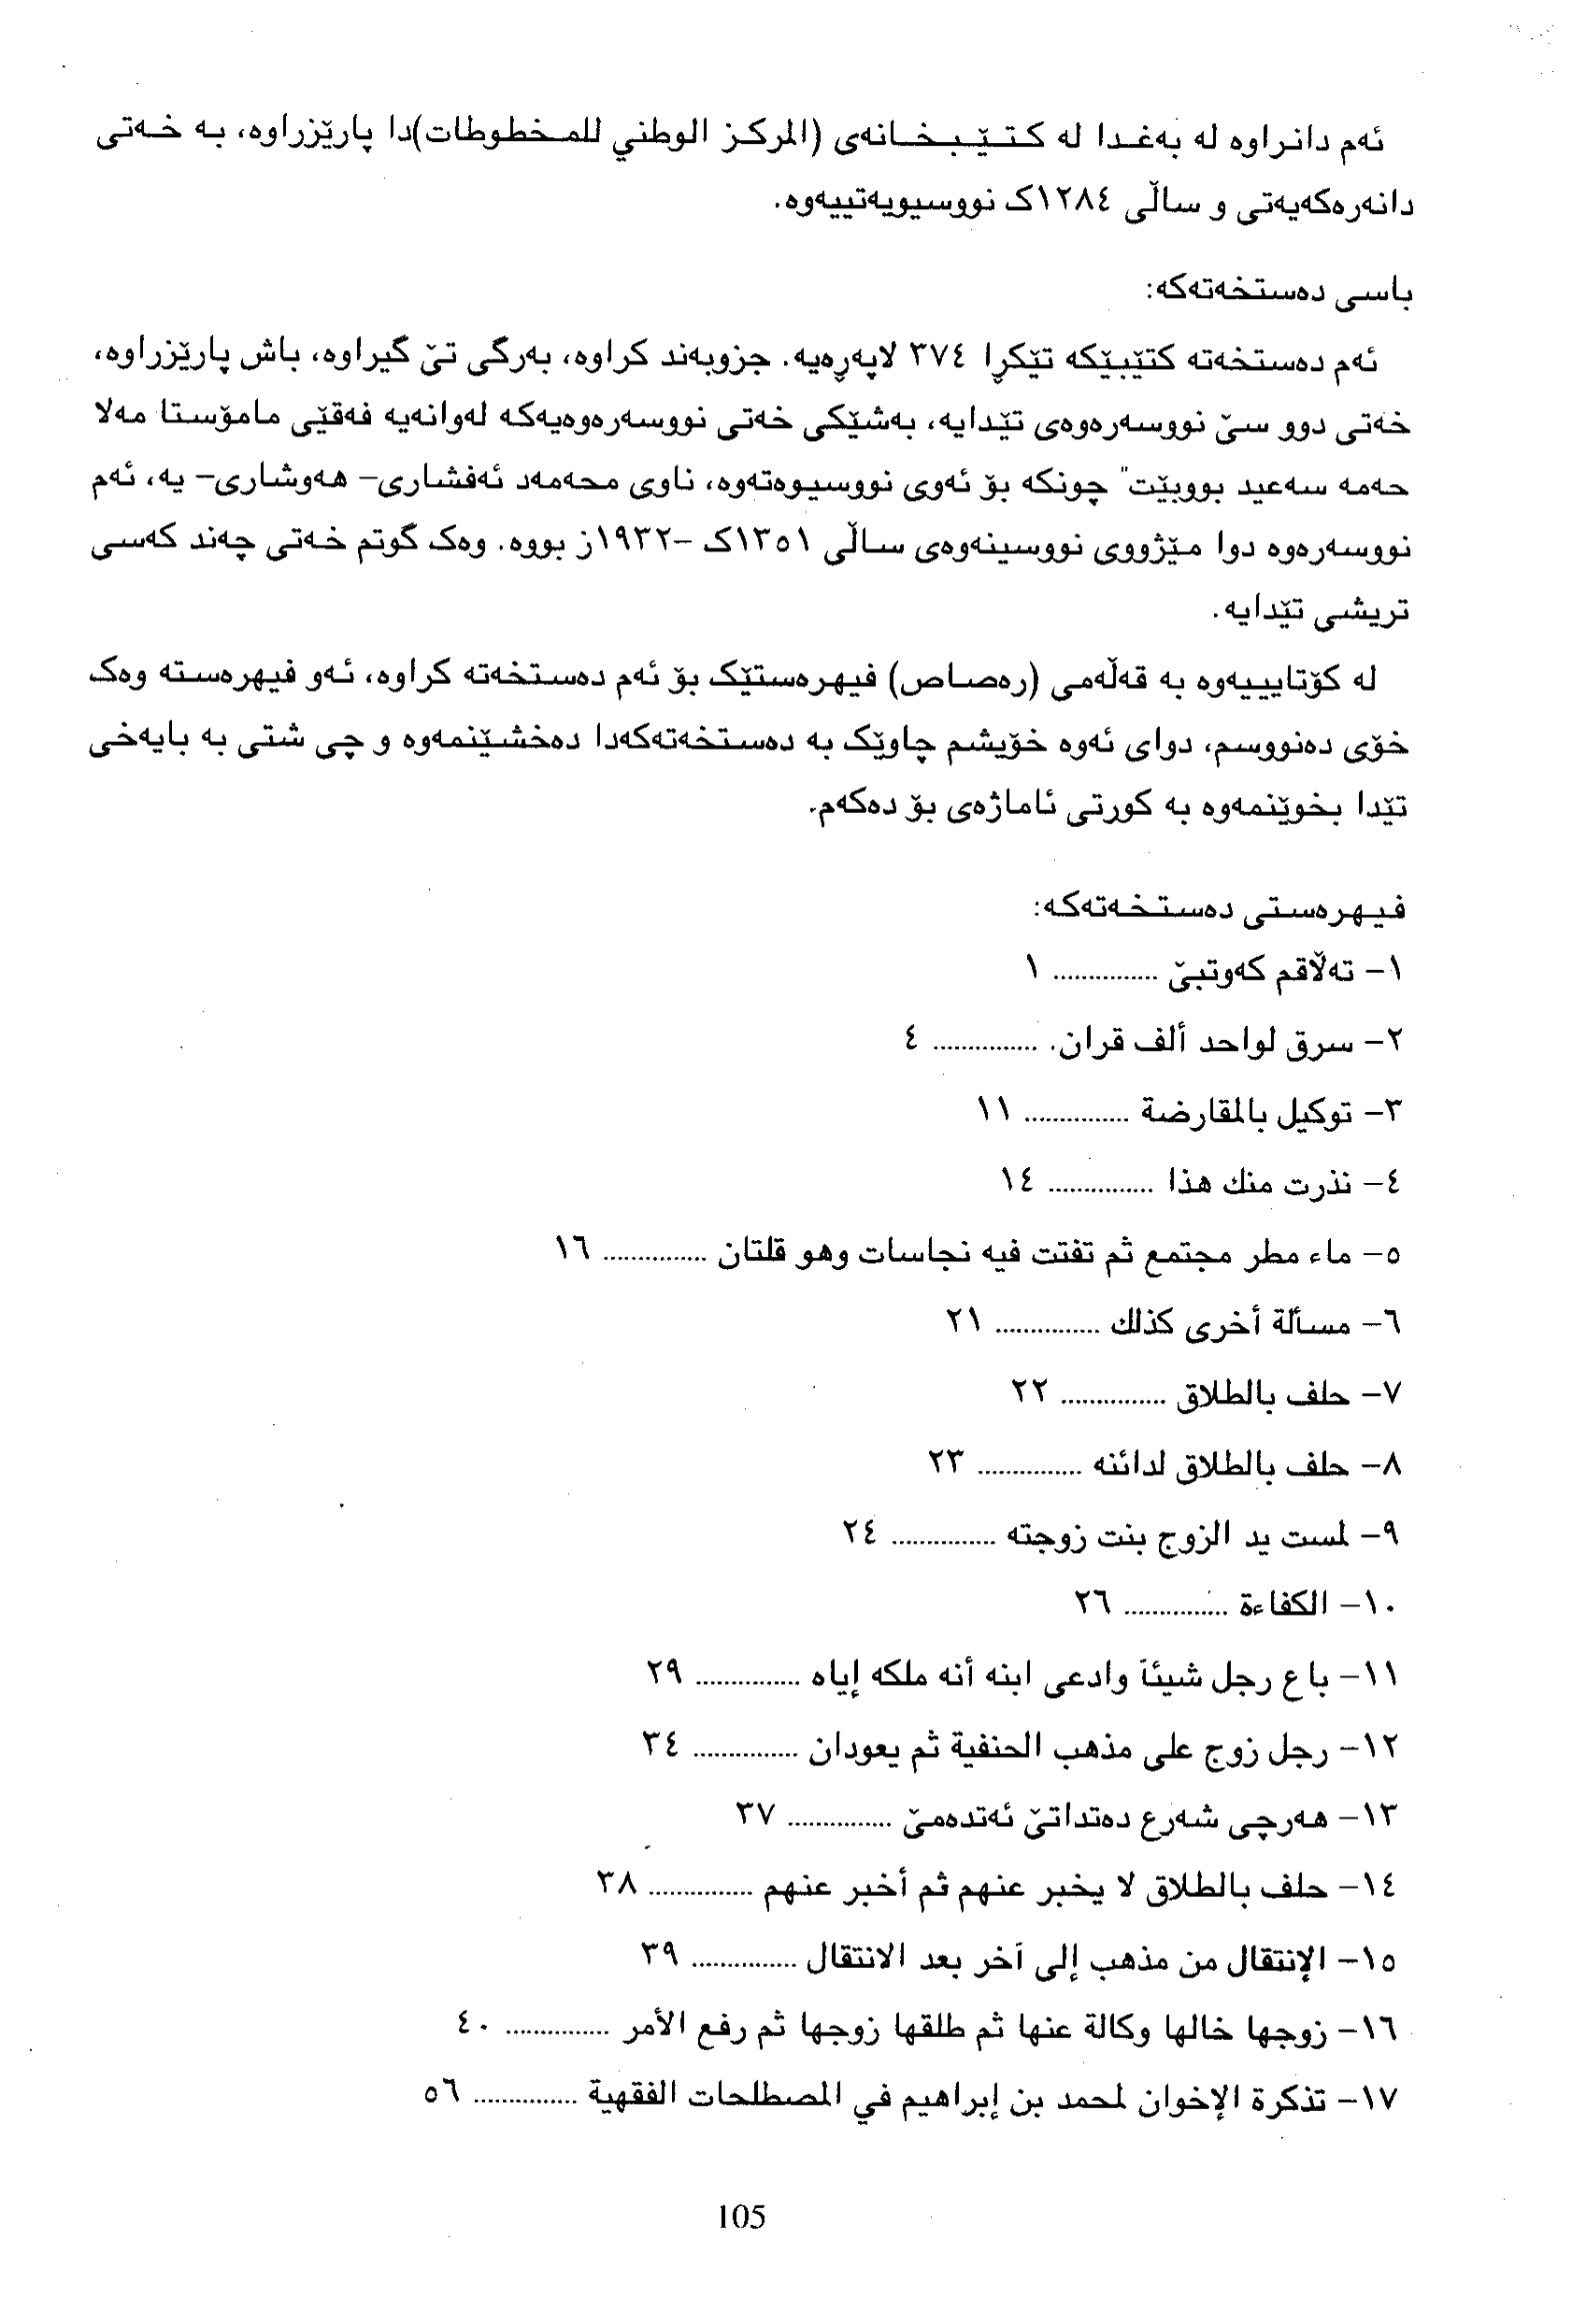 ئەم دانراوە لە بەغدا لە کتێبخانەی (المركز الوطني للمخطوطات)دا پارێزراوە، بە خەتی
دانەرەکەیەتی و ساڵی ١٢٨٤ک نووسیویەتییەوە.
باسی دەستخەتەکە:
ئەم دەستخەتە کتێبێکە تێکڕا ٣٧٤ لاپەڕەیە. جزوبەند کراوە، بەرگی تێ گیراوە، باش پارێزراوە،
خەتی دوو سێ نووسەرەوەی تێدایە، بەشێکی خەتی نووسەرەوەیەکە لەوانەیە فەقێی مامۆستا مەلا
حەمە سەعید بووبێت" چونکە بۆ ئەوی نووسیوەتەوە، ناوی محەمەد ئەفشاری- هەوشاری- یە، ئەم
نووسەرەوە دوا مێژووی نووسینەوەی ساڵی ١٣٥١ک -١٩٣٢ز بووە. وەک گوتم خەتی چەند کەسی
تریشی تێدایە.
لە کۆتاییەوە بە قەڵەمی (رەصاص) فیهرەستێک بۆ ئەم دەستخەتە کراوە، ئەو فیهرەستە وەک
خۆی دەنووسم، دوای ئەوە خۆیشم چاوێک بە دەستخەتەکەدا دەخشێنمەوە و چی شتی بە بایەخی
تێدا بخوێنمەوە بە کورتی ئاماژەی بۆ دەکەم.
فیهرەستی دەستخەتەکە:
١- تەڵاقم کەوتبێ ............... ١
٢- سرق لواحد ألف قران. ............... ٤
٣- توكيل بالمقارضة ............... ١١
٤- نذرت منك هذا ............... ١٤
٥- ماء مطر مجتمع ثم تفتت فيه نجاسات وهو قلتان ............... ١٦
٦- مسألة أخرى كذلك ............... ٢١
٧- حلف بالطلاق ............... ٢٢
٨- حلف بالطلاق لدائنه ............... ٢٣
٩- لمست يد الزوج بنت زوجته ............... ٢٤
١٠- الكفاءة ............... ٢٦
١١- باع رجل شيئاً وادعى ابنه أنه ملكه إياه ............... ٢٩
١٢- رجل زوج على مذهب الحنفية ثم يعودان ............... ٣٤
١٣- هەرچی شەرع دەتداتێ ئەتدەمێ ............... ٣٧
١٤- حلف بالطلاق لا يخبر عنهم ثم أخبر عنهم ............... ٣٨
١٥- الإنتقال من مذهب إلى آخر بعد الانتقال ............... ٣٩
١٦- زوجها خالها وكالة عنها ثم طلقها زوجها ثم رفع الأمر ............... ٤٠
١٧- تذكرة الإخوان لمحمد بن إبراهيم في المصطلحات الفقهية ............... ٥٦
105